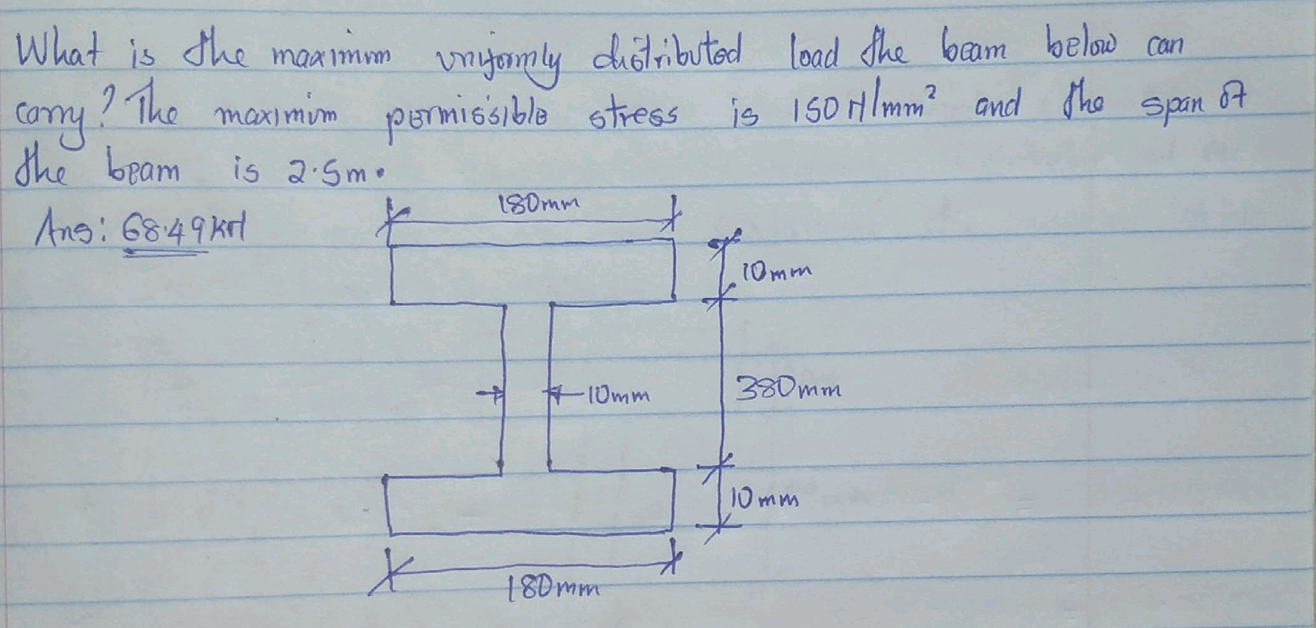 What is the maximum uniformly distributed load the beam below can
carry? The maximum permissible stress is 150 N/mm² and the span of
the beam is 2.5m.
Ans: 68.49kN
180mm
10mm
10mm
380mm
10mm
180mm